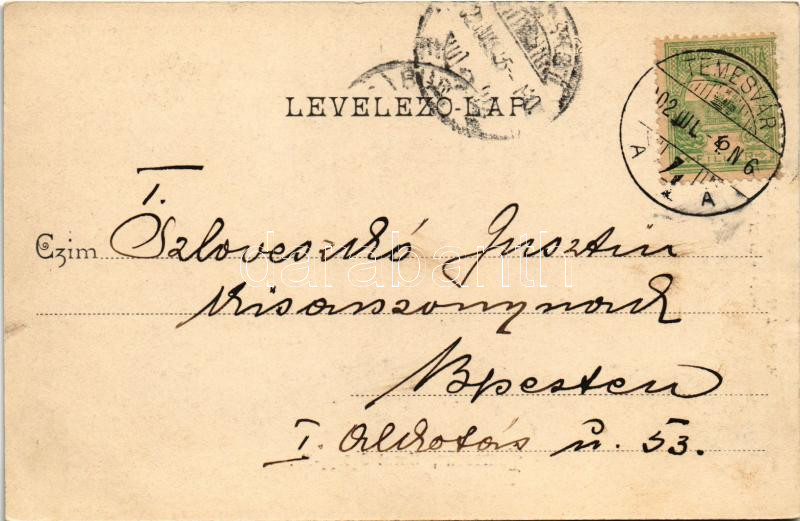 LEVELEZŐ-LAP
TEMESVÁR
A A
T.
Czim Szlovcsikó Jusztin
kisasszonynak
Bpesten
I. Alkotás u. 53.
darabanth